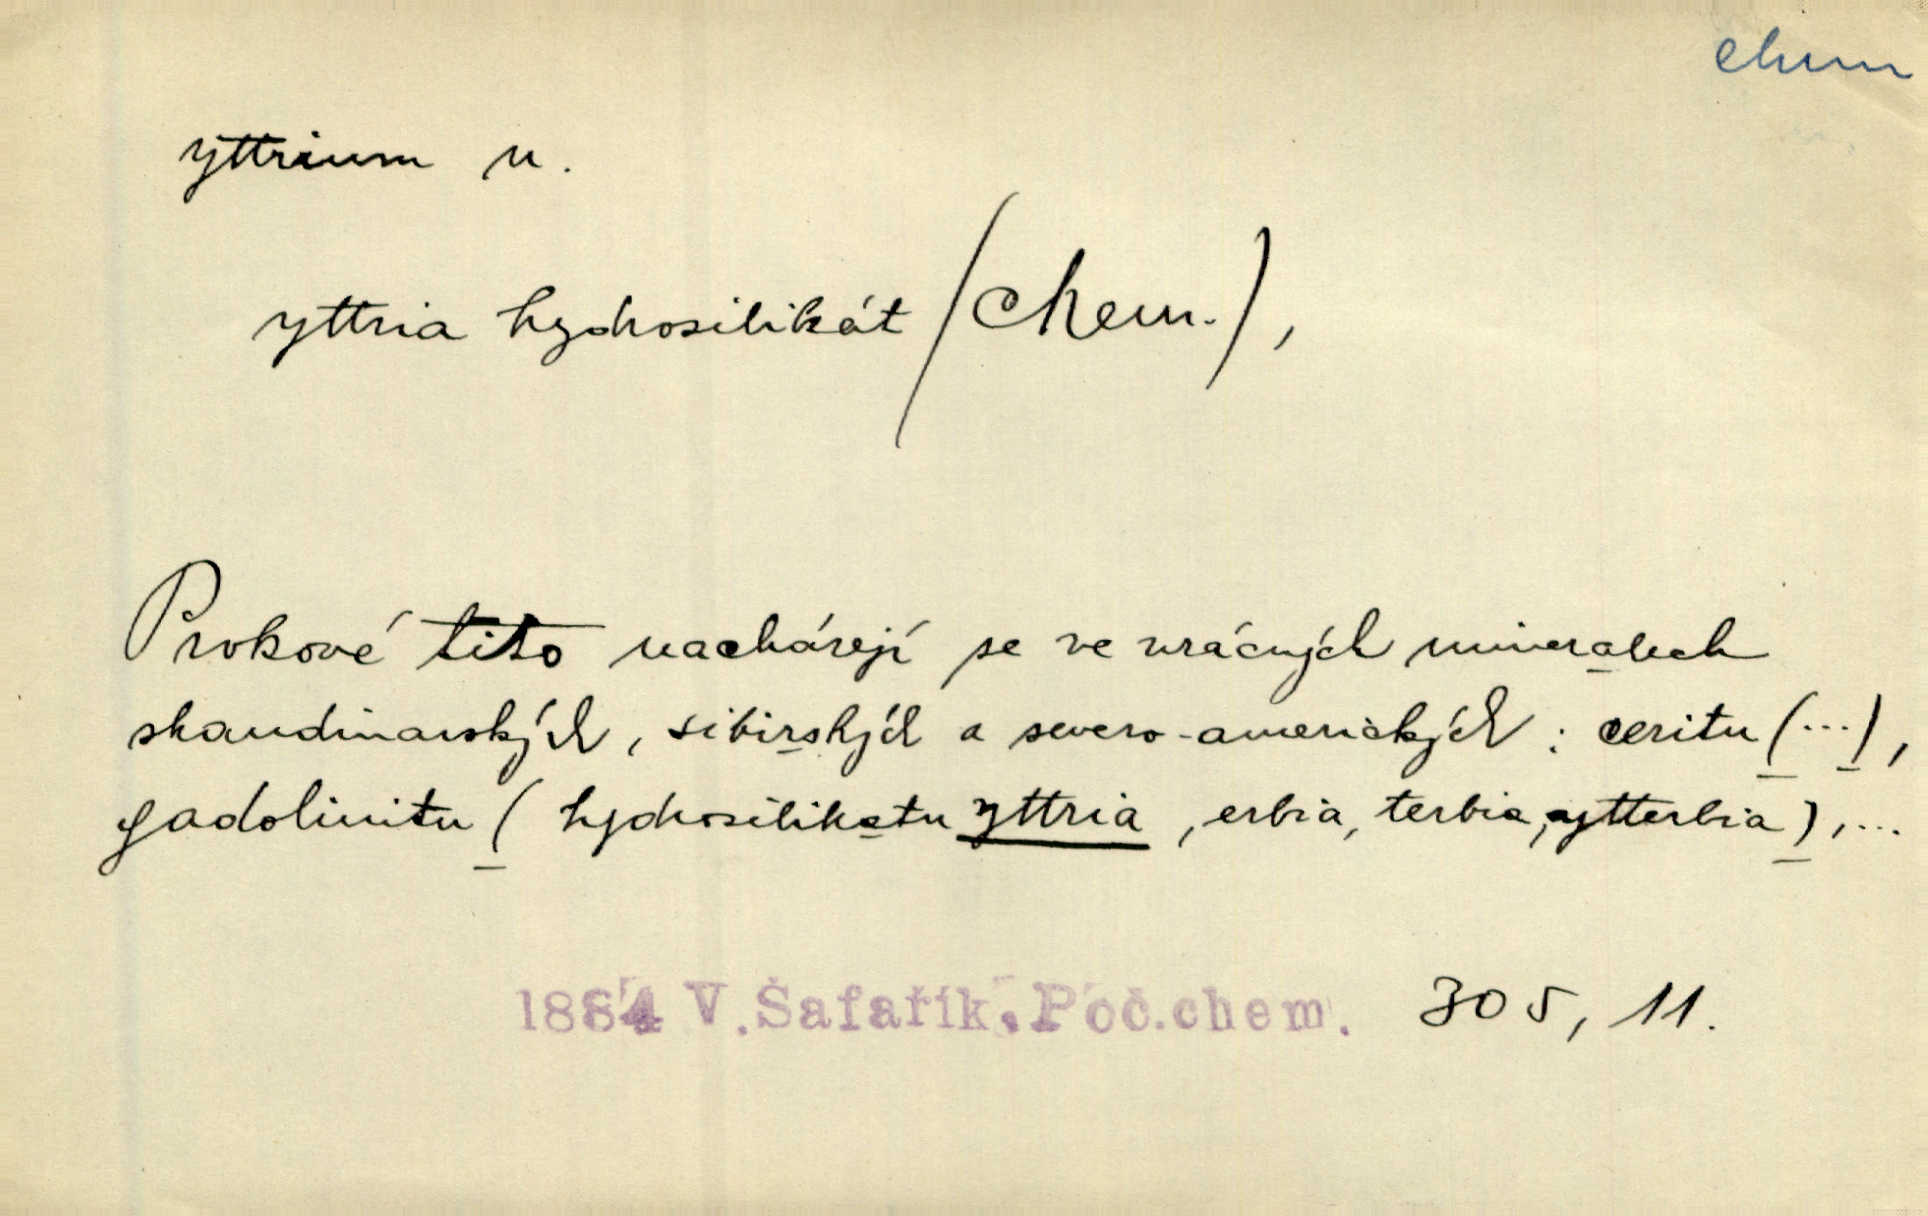 chem
yttrium n.
yttria hydrosilikát (chem.),
Prvkové tito nacházejí se ve vzácných mineralech
skandinavských, sibirských a severo-amerických: ceritu (...),
gadolinitu (hydrosilikatu yttria, erbia, terbia, ytterbia),...
1884 V. Šafařík. Poč. chem. 305, 11.